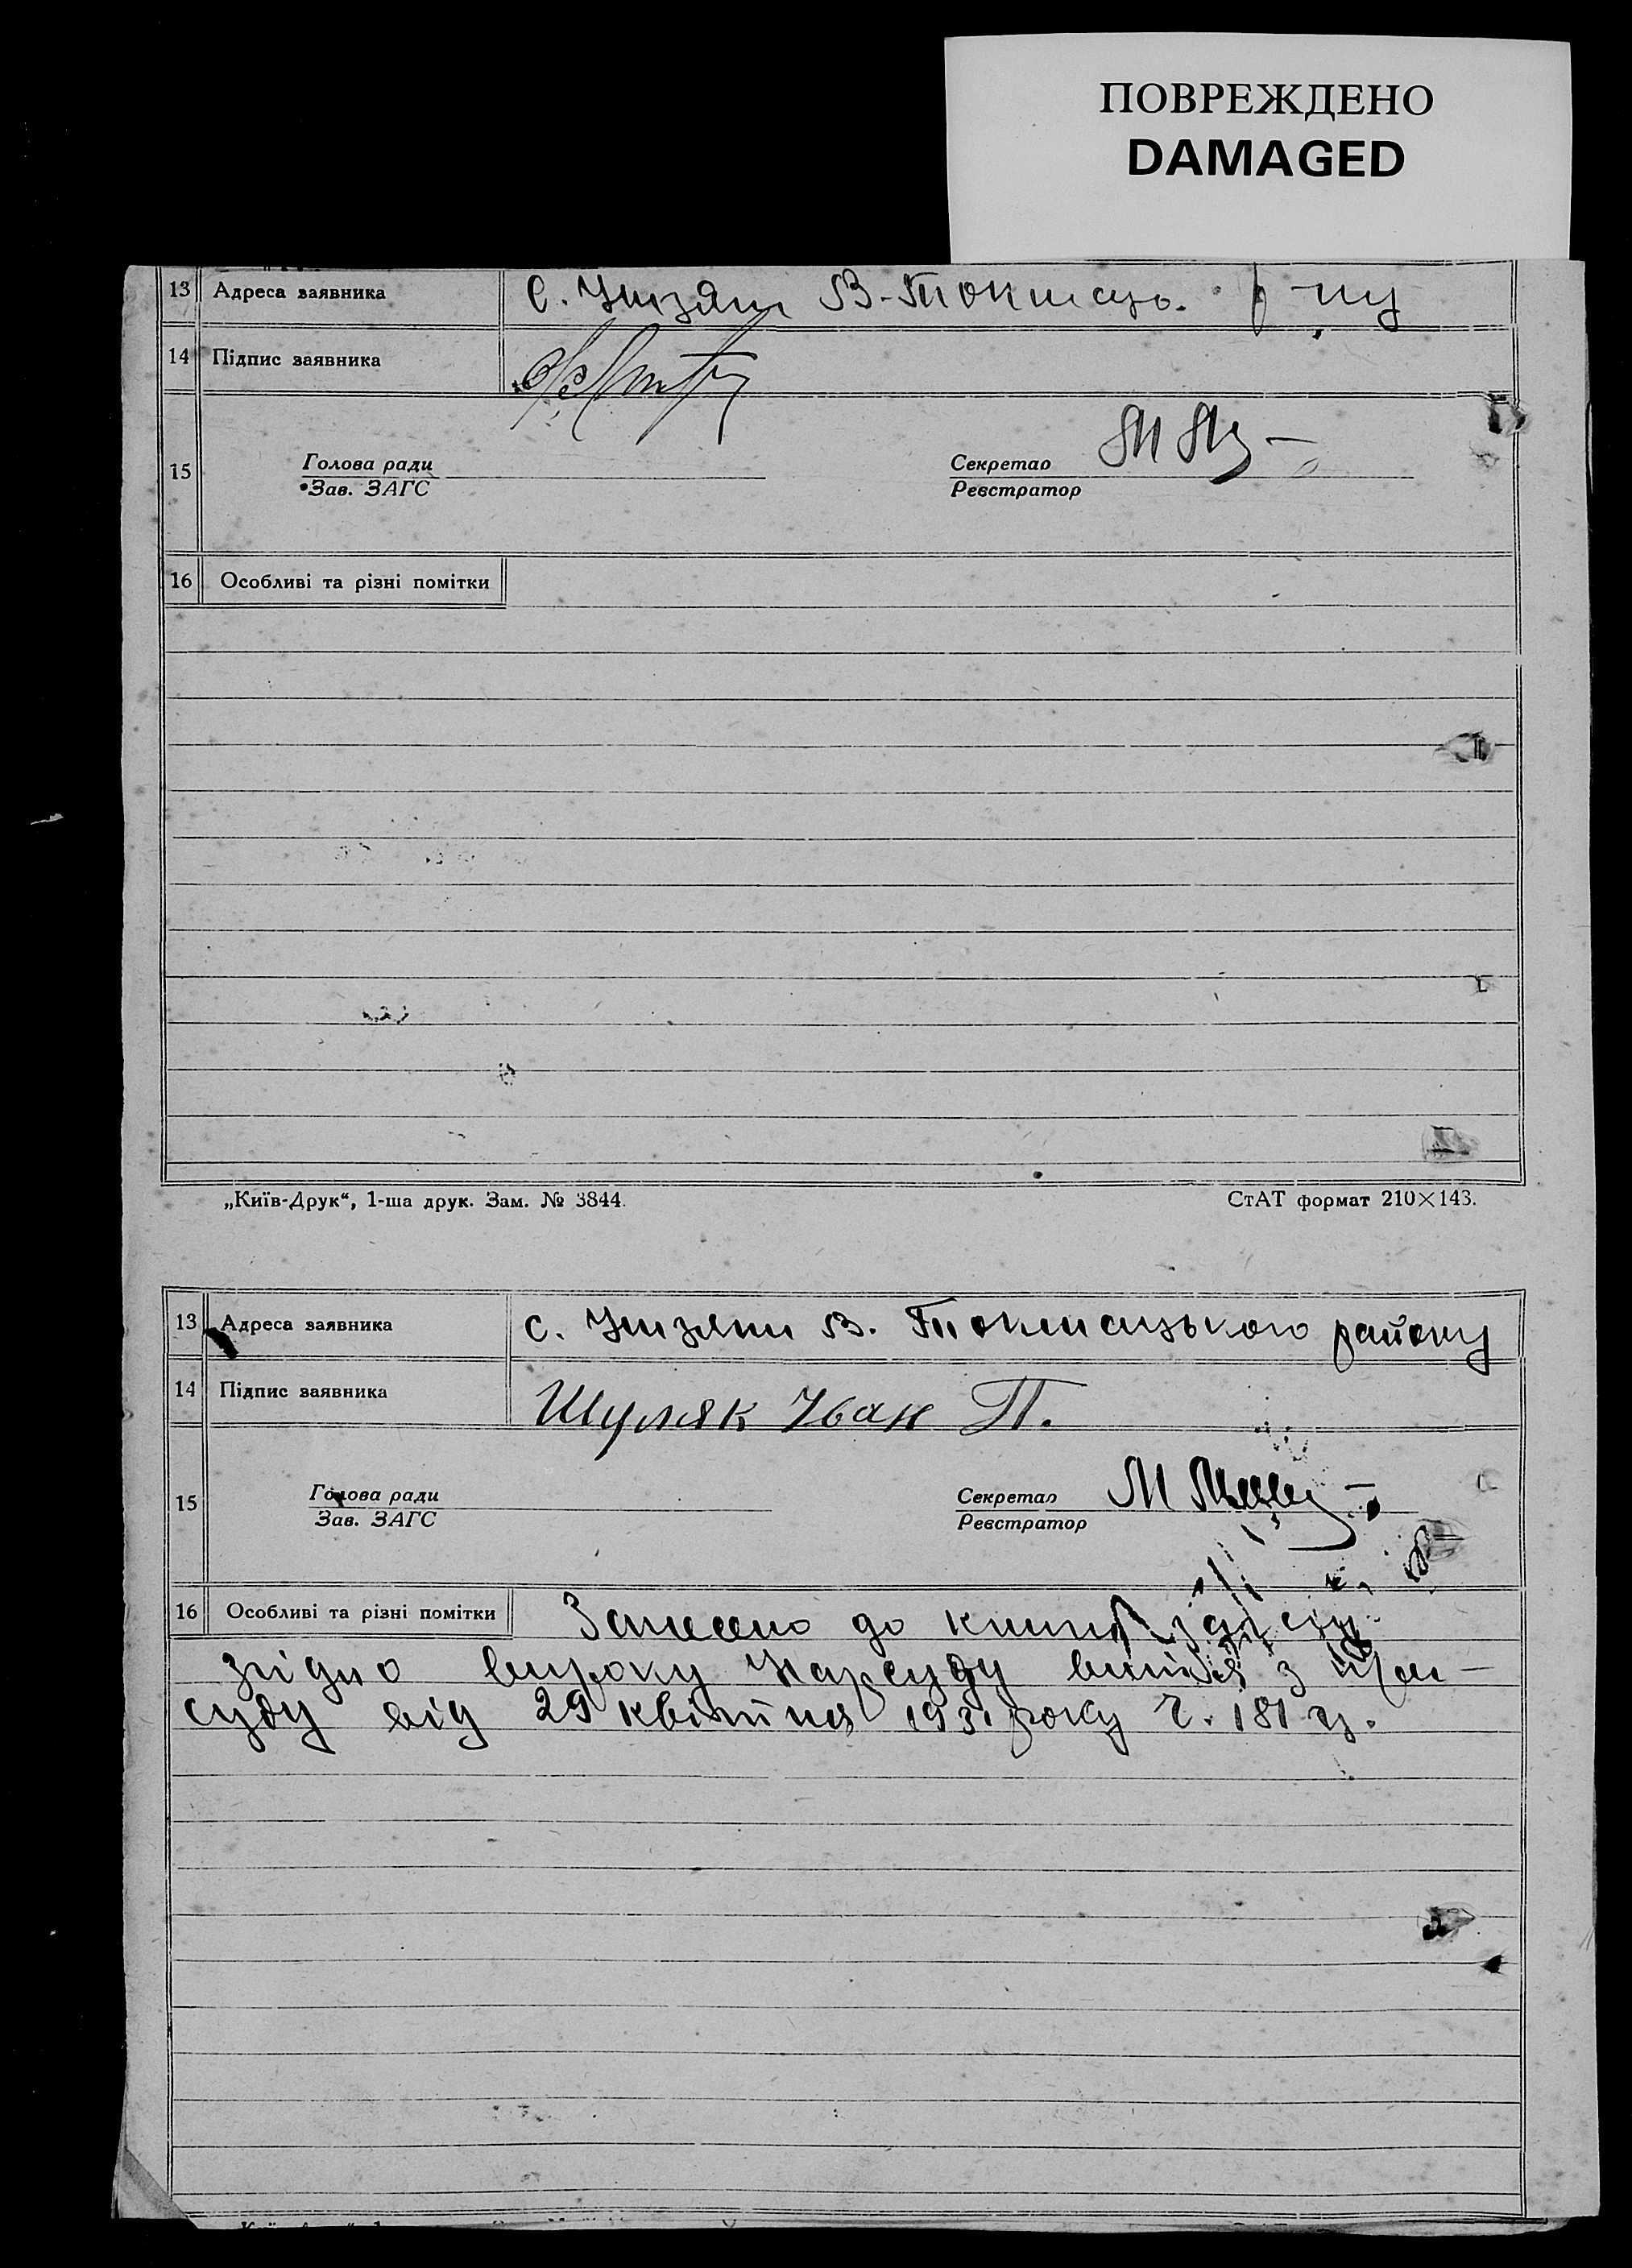 ПОВРЕЖДЕНО
DAMAGED
13 Адреса заявника с. В-Токмаць. р-ну
14 Підпис заявника
15 Голова ради Секретар
Зав. ЗАГС Реєстратор
16 Особливі та різні помітки
„Київ-Друк“, 1-ша друк. Зам. № 3844. СтАТ формат 210×143.
13 Адреса заявника с. В. Токмацького району
14 Підпис заявника Шуляк Іван П.
15 Голова ради Секретар М
Зав. ЗАГС Реєстратор
16 Особливі та різні помітки Занесено до книги
згідно вироку Нарсуду з
суду від 29 квітня 1931 року ч. 181